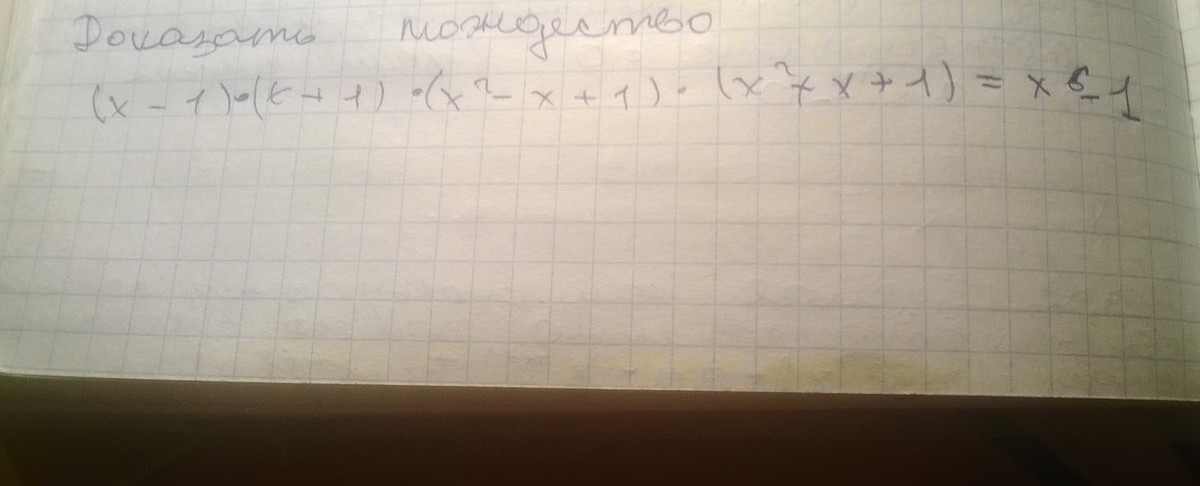 Доказать тождество
(x - 1)•(x + 1)•(x² - x + 1)•(x² + x + 1) = x⁶ - 1